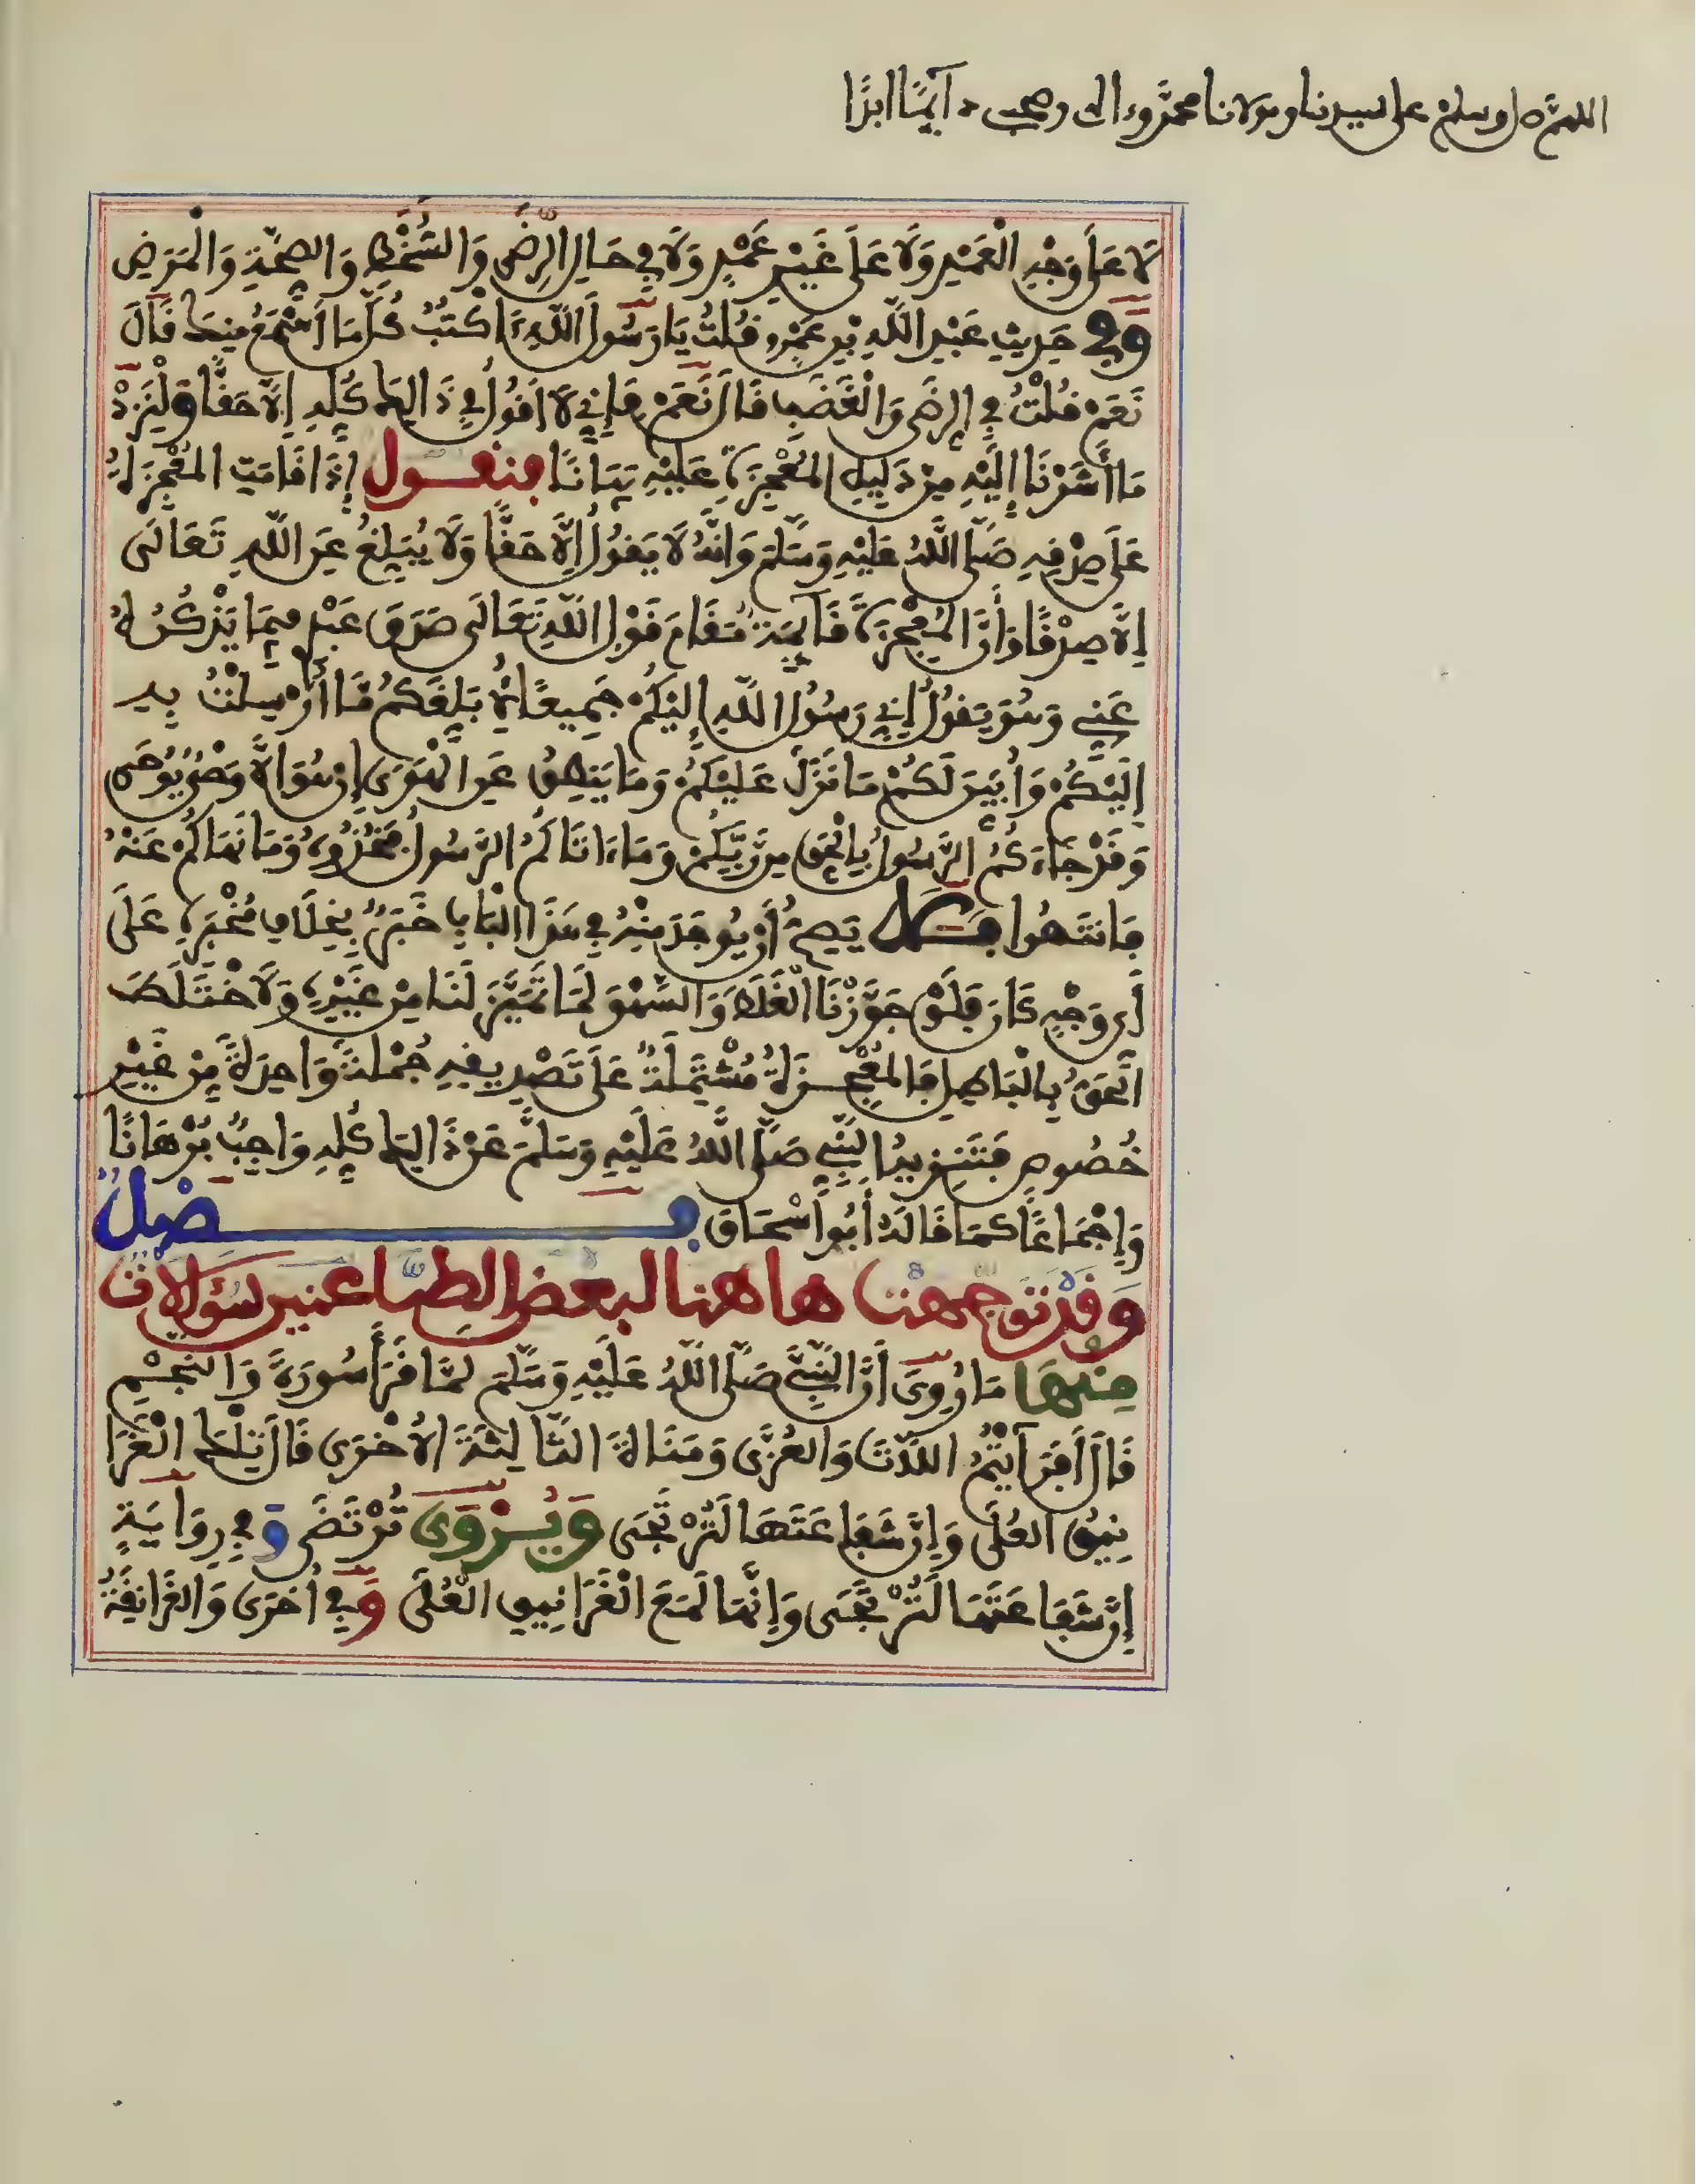 اللهم صل وسلم على سيدنا ومولانا محمد وءاله وصحبه دآئما ابدا
لَا عَلَى وَجْهِ الْعَمْدِ وَلَا عَلَى غَيْرِ عَمْدٍ وَلَا فِي حَالِ الرِّضَى وَالسُّخْطِ وَالصِّحَّةِ وَالْمَرَضِ
وَفِي حَدِيثِ عَبْدِ اللَّهِ بْنِ عَمْرٍو قُلْتُ يَا رَسُولَ اللَّهِ ءَاكْتُبُ كُلَّمَا أَسْمَعُ مِنْكَ قَالَ
نَعَمْ قُلْتُ فِي الرِّضَى وَالْغَضَبِ قَالَ نَعَمْ فَإِنِّي لَا أَقُولُ فِي ذَالِكَ كُلِّهِ إِلَّا حَقًّا وَلْنَزِدْ
مَا أَشَرْنَا إِلَيْهِ مِنْ دَلِيلِ الْمُعْجِزَةِ عَلَيْهِ بَيَانًا فنقول إِذَا قَامَتِ الْمُعْجِزَةُ
عَلَى صِدْقِهِ صَلَّى اللَّهُ عَلَيْهِ وَسَلَّمَ وَأَنَّهُ لَا يَقُولُ إِلَّا حَقًّا وَلَا يُبَلِّغُ عَنِ اللَّهِ تَعَالَى
إِلَّا صِدْقًا وَأَنَّ الْمُعْجِزَةَ قَآئِمَةٌ مَقَامَ قَوْلِ اللَّهِ تَعَالَى صَدَقَ عَبْدِي فِيمَا يَذْكُرُهُ
عَنِّي وَهُوَ يَقُولُ إِنِّي رَسُولُ اللَّهِ إِلَيْكُمْ جَمِيعًا لِأُبَلِّغَكُمْ مَّا أُرْسِلْتُ بِهِ
إِلَيْكُمْ وَأُبَيِّنَ لَكُمْ مَا نَزَلَ عَلَيْكُمْ وَمَا يَنطِقُ عَنِ الْهَوَى إِنْ هُوَ إِلَّا وَحْيٌ يُوحَى
وَقَدْ جَاءَكُمُ الرَّسُولُ بِالْحَقِّ مِن رَّبِّكُمْ وَمَا ءَاتَاكُمُ الرَّسُولُ فَخُذُوهُ وَمَا نَهَاكُمْ عَنْهُ
فَانتَهُوا فَلَا يَصِحُّ أَنْ يُوجَدَ مِنْهُ فِي هَذَا الْبَابِ خَبَرٌ بِخِلَافِ مُخْبَرِهِ عَلَى
أَيِ وَجْهٍ كَانَ فَلَوْ جَوَّزْنَا الْغَلَطَ وَالسَّهْوَ لَمَا تَمَيَّزَ لَنَا مِنْ غَيْرِهِ وَلَاخْتَلَطَ
الْحَقُّ بِالْبَاطِلِ فَالْمُعْجِزَةُ مُشْتَمِلَةٌ عَلَى تَصْدِيقِهِ جُمْلَةً وَاحِدَةً مِنْ غَيْرِ
خُصُوصٍ فَتَنْزِيهُ النَّبِيِّ صَلَّى اللَّهُ عَلَيْهِ وَسَلَّمَ عَنْ ذَالِكَ كُلِّهِ وَاجِبٌ بُرْهَانًا
وَإِجْمَاعًا كَمَا قَالَهُ أَبُو إِسْحَاقَ فَصْلٌ
وَقَدْ تَوَجَّهَتْ هاهنا لبعض الطاعنين سُؤَالَاتٌ
مِنْهَا مَا رُوِيَ أَنَّ النَّبِيَّ صَلَّى اللَّهُ عَلَيْهِ وَسَلَّمَ لَمَّا قَرَأَ سُورَةَ وَالنَّجْمِ
قَالَ أَفَرَآيْتُمُ اللَّاتَ وَالْعُزَّى وَمَنَاةَ الثَّالِثَةَ الْأُخْرَى قَالَ تِلْكَ الْغَرَا
نِيقُ الْعُلَى وَإِنَّ شَفَاعَتَهَا لَتُرْتَجَى وَيُرْوَى تُرْتَضَى وَفِي رِوَايَةٍ
إِنَّ شَفَاعَتَهَا لَتُرْتَجَى وَإِنَّهَا لَمَعَ الْغَرَانِيقِ الْعُلَى وَفِي أُخْرَى وَالْغَرَانِقَةُ